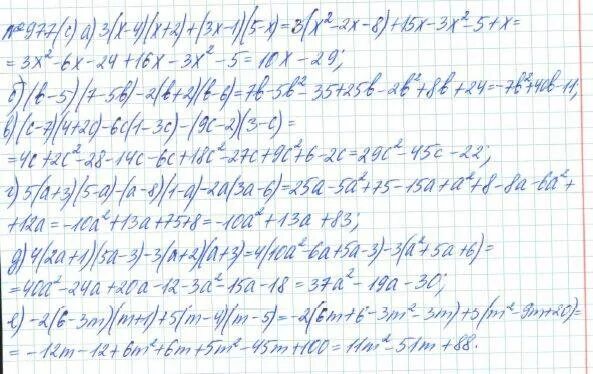 № 977 (с) а) 3(x-4)(x+2)+(3x-1)(5-x)=3(x²-2x-8)+15x-3x²-5+x=
=3x²-6x-24+16x-3x²-5=10x-29;
б) (b-5)(7-5b)-2(b+2)(b-6)=7b-5b²-35+25b-2b²+8b+24=-7b²+40b-11;
в) (c-7)(4+2c)-6c(1-3c)-(9c-2)(3-c)=
=4c+2c²-28-14c-6c+18c²-27c+9c²+6-2c=29c²-45c-22;
г) 5(a+3)(5-a)-(a-8)(1-a)-2a(3a-6)=25a-5a²+75-15a+a²+8-8a-6a²+
+12a=-10a²+13a+75+8=-10a²+13a+83;
д) 4(2a+1)(5a-3)-3(a+2)(a+3)=4(10a²-6a+5a-3)-3(a²+5a+6)=
=40a²-24a+20a-12-3a²-15a-18=37a²-19a-30;
е) -2(6-3m)(m+1)+5(m-4)(m-5)=-2(6m+6-3m²-3m)+5(m²-9m+20)=
=-12m-12+6m²+6m+5m²-45m+100=11m²-51m+88.